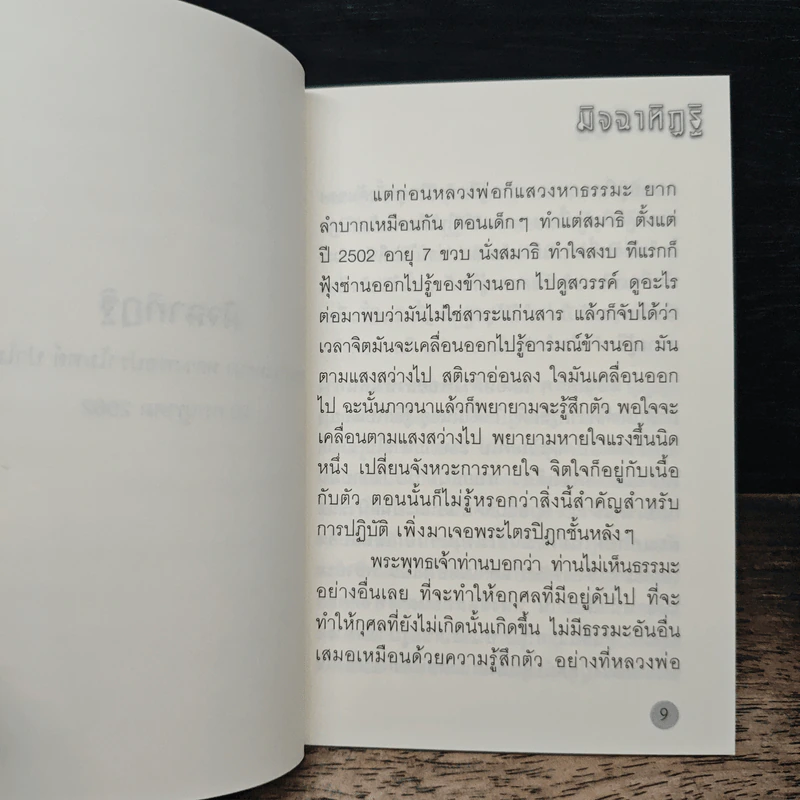 มิจฉาทิฏฐิ
แต่ก่อนหลวงพ่อก็แสวงหาธรรมะ ยาก
ลำบากเหมือนกัน ตอนเด็กๆ ทำแต่สมาธิ ตั้งแต่
ปี 2502 อายุ 7 ขวบ นั่งสมาธิ ทำใจสงบ ทีแรกก็
ฟุ้งซ่านออกไปรู้ของข้างนอก ไปดูสวรรค์ ดูอะไร
ต่อมาพบว่ามันไม่ใช่สาระแก่นสาร แล้วก็จับได้ว่า
เวลาจิตมันจะเคลื่อนออกไปรู้อารมณ์ข้างนอก มัน
ตามแสงสว่างไป สติเราอ่อนลง ใจมันเคลื่อนออก
ไป ฉะนั้นภาวนาแล้วก็พยายามจะรู้สึกตัว พอใจจะ
เคลื่อนตามแสงสว่างไป พยายามหายใจแรงขึ้นนิด
หนึ่ง เปลี่ยนจังหวะการหายใจ จิตใจก็อยู่กับเนื้อ
กับตัว ตอนนั้นก็ไม่รู้หรอกว่าสิ่งนี้สำคัญสำหรับ
การปฏิบัติ เพิ่งมาเจอพระไตรปิฎกชั้นหลังๆ
พระพุทธเจ้าท่านบอกว่า ท่านไม่เห็นธรรมะ
อย่างอื่นเลย ที่จะทำให้อกุศลที่มีอยู่ดับไป ที่จะ
ทำให้กุศลที่ยังไม่เกิดนั้นเกิดขึ้น ไม่มีธรรมะอันอื่น
เสมอเหมือนด้วยความรู้สึกตัว อย่างที่หลวงพ่อ
9